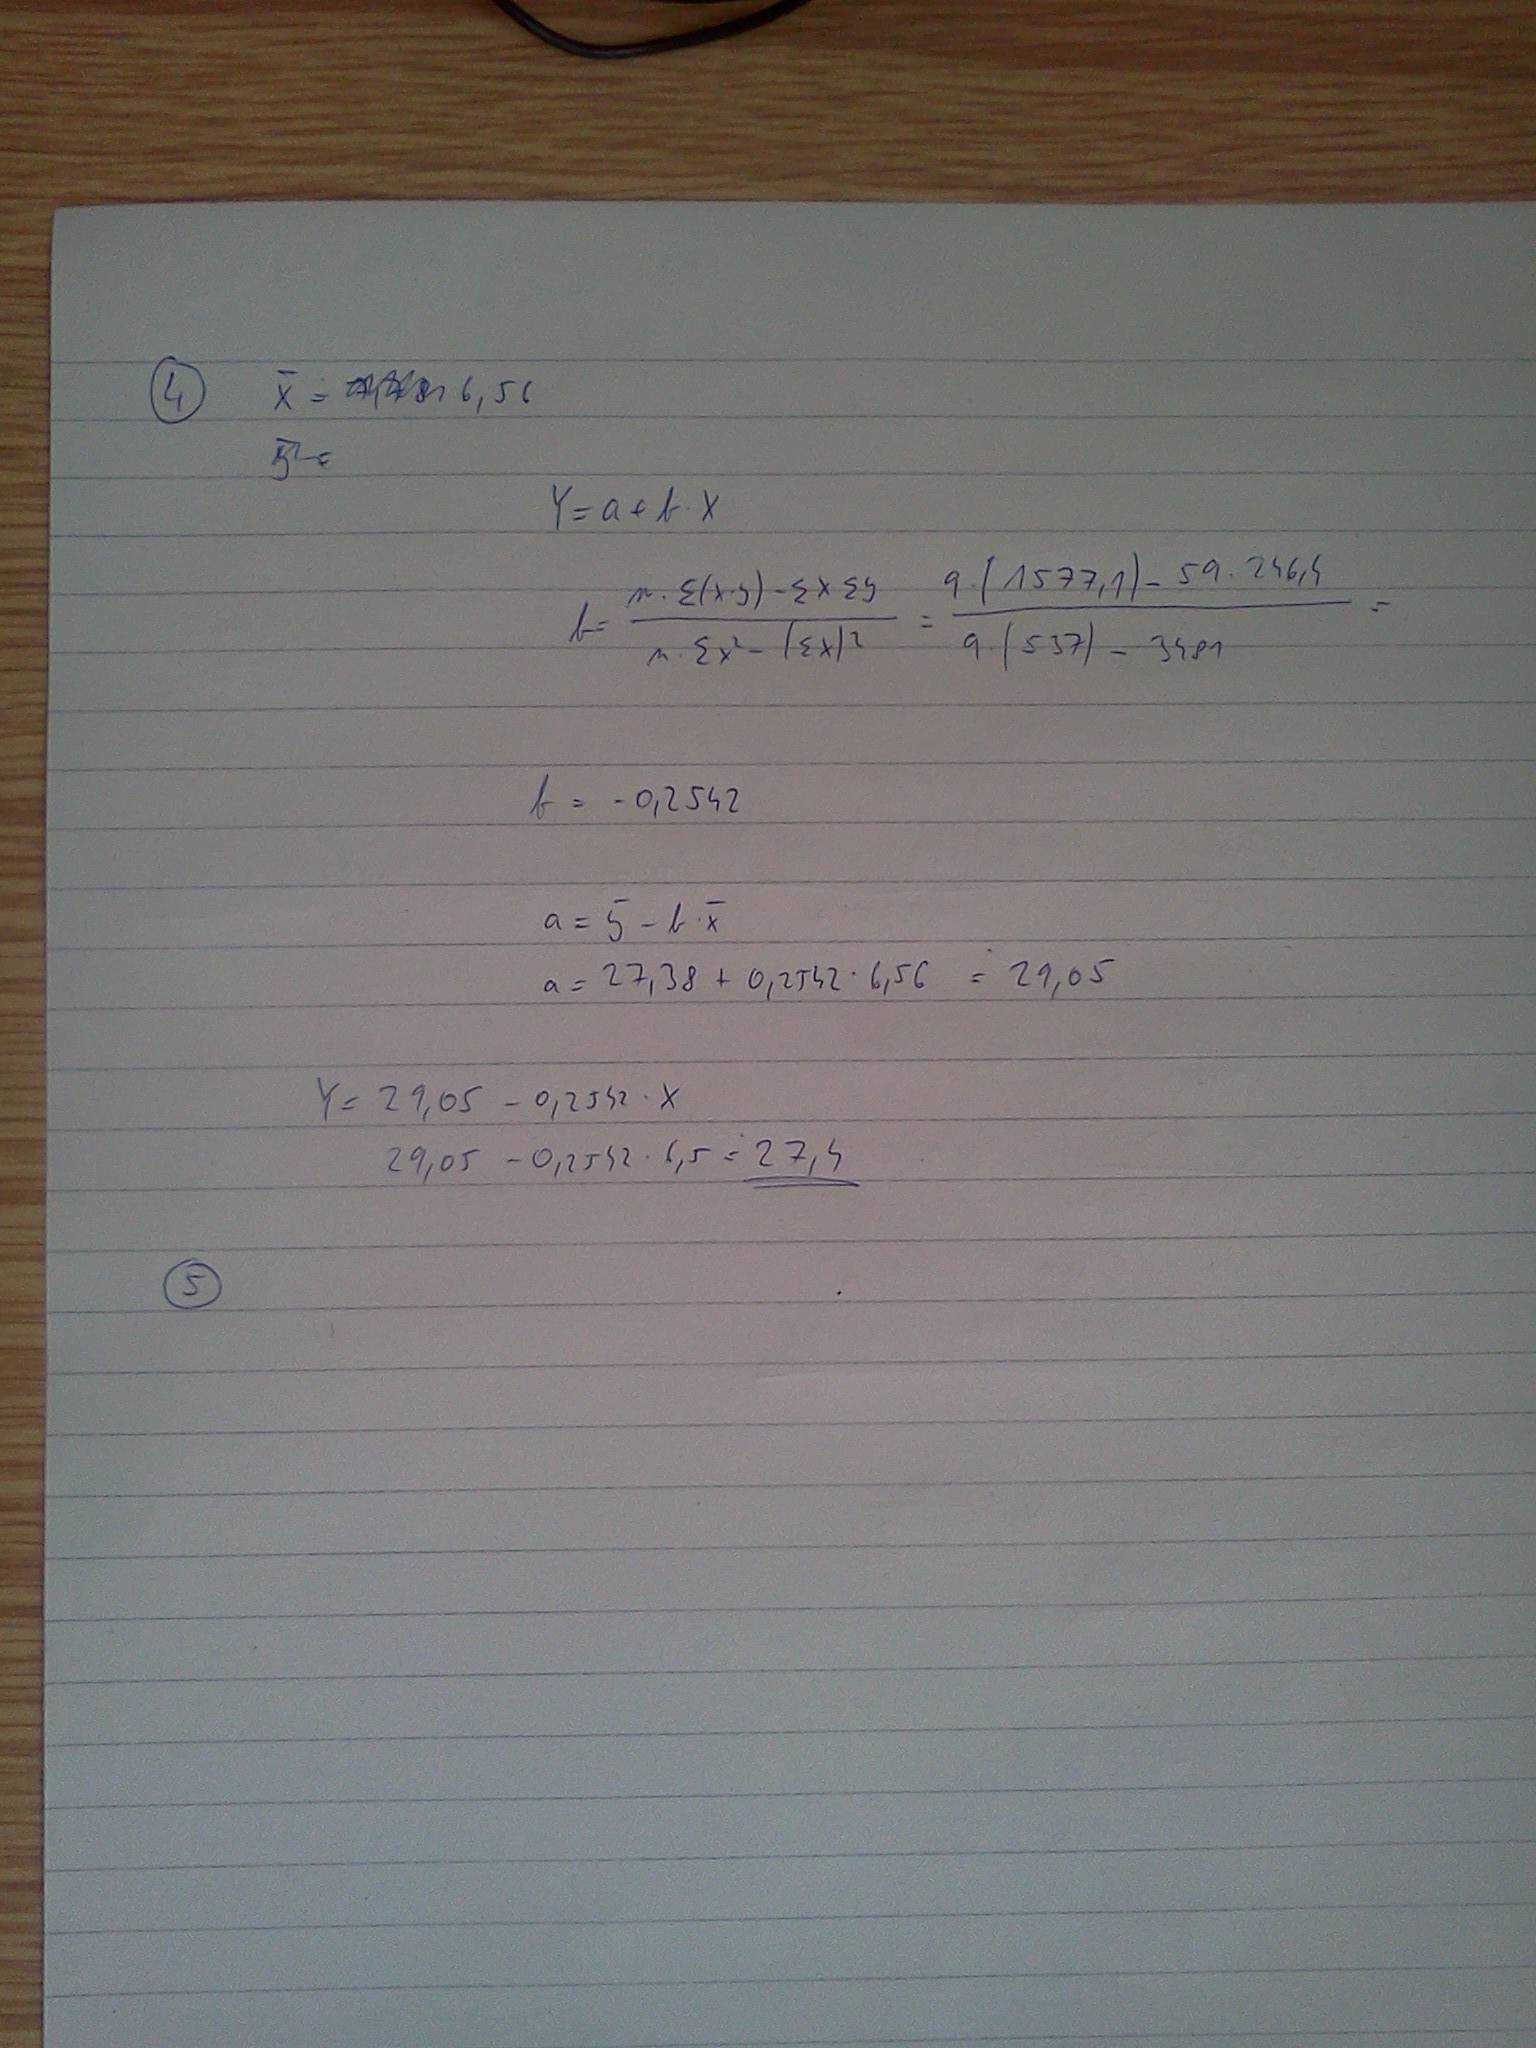 4 x̄ = 6,56
ȳ =
Y = a + b · X
b = n · Σ(x·y) - Σx Σy / n · Σx² - (Σx)² = 9 · (1577,1) - 59 · 246,4 / 9 · (537) - 3481 =
b = -0,2542
a = ȳ - b · x̄
a = 27,38 + 0,2542 · 6,56 = 29,05
Y = 29,05 - 0,2542 · X
29,05 - 0,2542 · 6,5 = 27,4
5